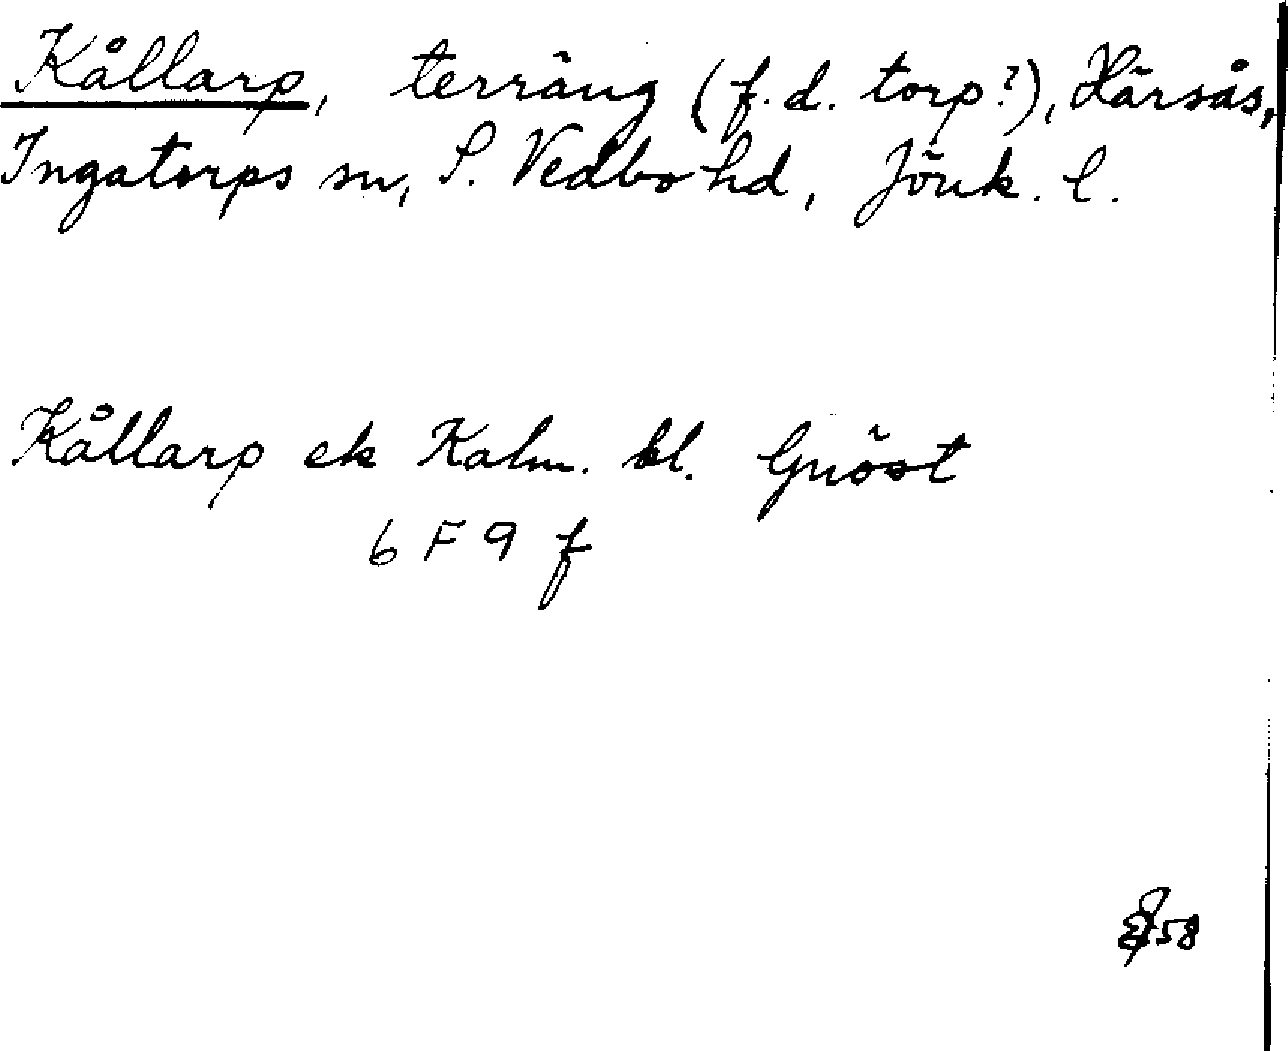 Kållarp, terräng (f.d. torp?), Härsås,
Ingatorps sn, S. Vedbo hd, Jönk. l.
Kållarp ek Kalm. bl. Gnöst
6 F 9 f
58